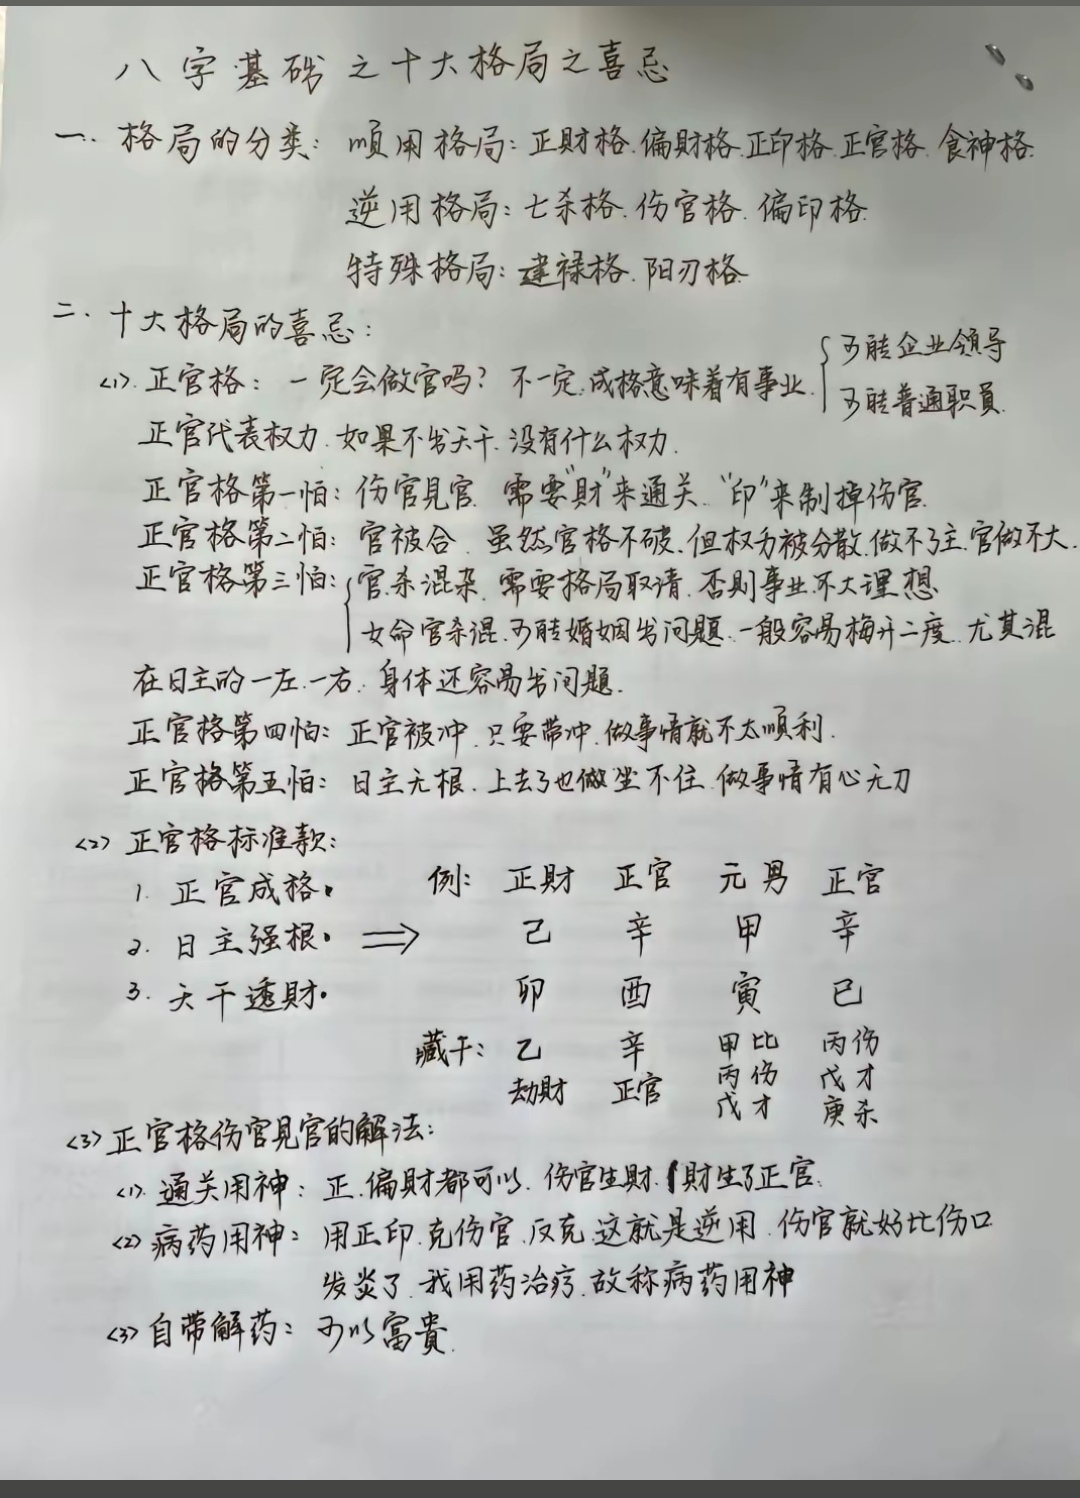 八字基础之十大格局之喜忌
一. 格局的分类: 順用格局: 正财格.偏财格.正印格.正官格.食神格.
逆用格局: 七杀格.伤官格.偏印格.
特殊格局: 建禄格.阳刃格.
二. 十大格局的喜忌:
可能企业领导
<1>. 正官格: 一定会做官吗? 不一定.成格意味着有事业.
可能普通职員.
正官代表权力.如果不出天干.没有什么权力.
正官格第一怕: 伤官見官. 需要"財"来通关."印"来制掉伤官.
正官格第二怕: 官被合. 虽然官格不破.但权力被分散.做不了主.官做不大.
正官格第三怕: 官杀混杂. 需要格局取清. 否则事业不大理想.
女命官杀混.可能婚姻出问题.一般容易梅开二度.尤其混
在日主的一左.一右. 身体还容易出问题.
正官格第四怕: 正官被冲.只要带冲.做事情就不太順利.
正官格第五怕: 日主无根.上去了也做坐不住.做事情有心无力
<2> 正官格标准款:
例: 正財 正官 元男 正官
1. 正官成格.
己 辛 甲 辛
2. 日主强根. ⇒
3. 天干透財.
卯 酉 寅 巳
藏干: 乙 辛 甲比 丙伤
劫財 正官 丙伤 戊才
戊才 庚杀
<3> 正官格伤官見官的解法:
<1>. 通关用神: 正.偏財都可以. 伤官生財.財生了正官.
<2> 病药用神: 用正印.克伤官.反克.这就是逆用.伤官就好比伤口
发炎了.我用药治疗.故称病药用神
<3> 自带解药: 可以富貴.